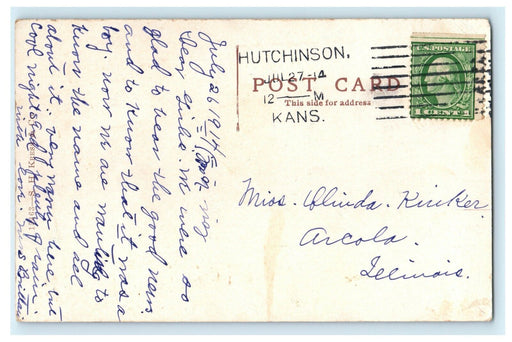 July 26 1914
Dear Girls. We were so
glad to hear the good news
and to know that it was a
boy. now we are wanting to
know the name and all
about it. very warm here but
cool nights and plenty of rain
with love.
POST CARD
This side for address
HUTCHINSON,
JUL 27 14
12 — M
KANS.
U.S. POSTAGE
1 CENT 1
Miss. Olinda. Kinker
Arcola.
Illinois.